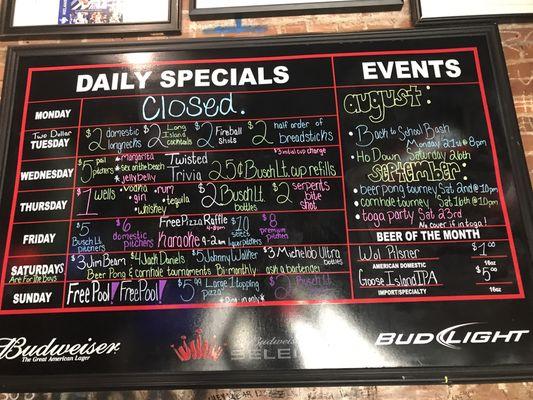 DAILY SPECIALS
MONDAY
Closed.
Two Dollar
TUESDAY
$2 domestic longnecks $2 Long Island cocktails $2 Fireball Shots $2 half order of breadsticks
WEDNESDAY
$5 pail pitters *margarita *sex on the beach *jelly belly Twisted Trivia 25¢ Busch Lt. cup refills
*$3 initial cup charge
THURSDAY
$1 Wells *vodka *gin *rum *tequila *whiskey $2 Busch Lt. bottles $2 serpents bite shot
FRIDAY
$5 Busch Lt. pitchers $6 domestic pitchers Free Pizza Raffle Karaoke 9-2am $10 select liquor pitchers $8 premium pitchers
SATURDAYS
Are For The Boys
$3 Jim Beam $4 Jack Daniels $5 Johnny Walker $3 Michelob Ultra bottles
Beer Pong & cornhole tournaments Bi-monthly ask a bartender
SUNDAY
Free Pool! Free Pool! $5.99 Large 1 topping pizza *Dine-in only* $2 Busch Lt.
EVENTS
august:
•Back to School Bash
Monday 21st @ 8pm
•Ho Down Saturday 26th
September:
•beer pong tourney Sat 2nd @ 10pm
•cornhole tourney Sat 16th @ 10pm
•toga party Sat 23rd
*No cover if in toga*
BEER OF THE MONTH
Wol Pilsner $1.00
AMERICAN DOMESTIC 16oz
Goose Island IPA $5.00
IMPORT/SPECIALTY 16oz
Budweiser
The Great American Lager
Budweiser
SELECT
BUD LIGHT